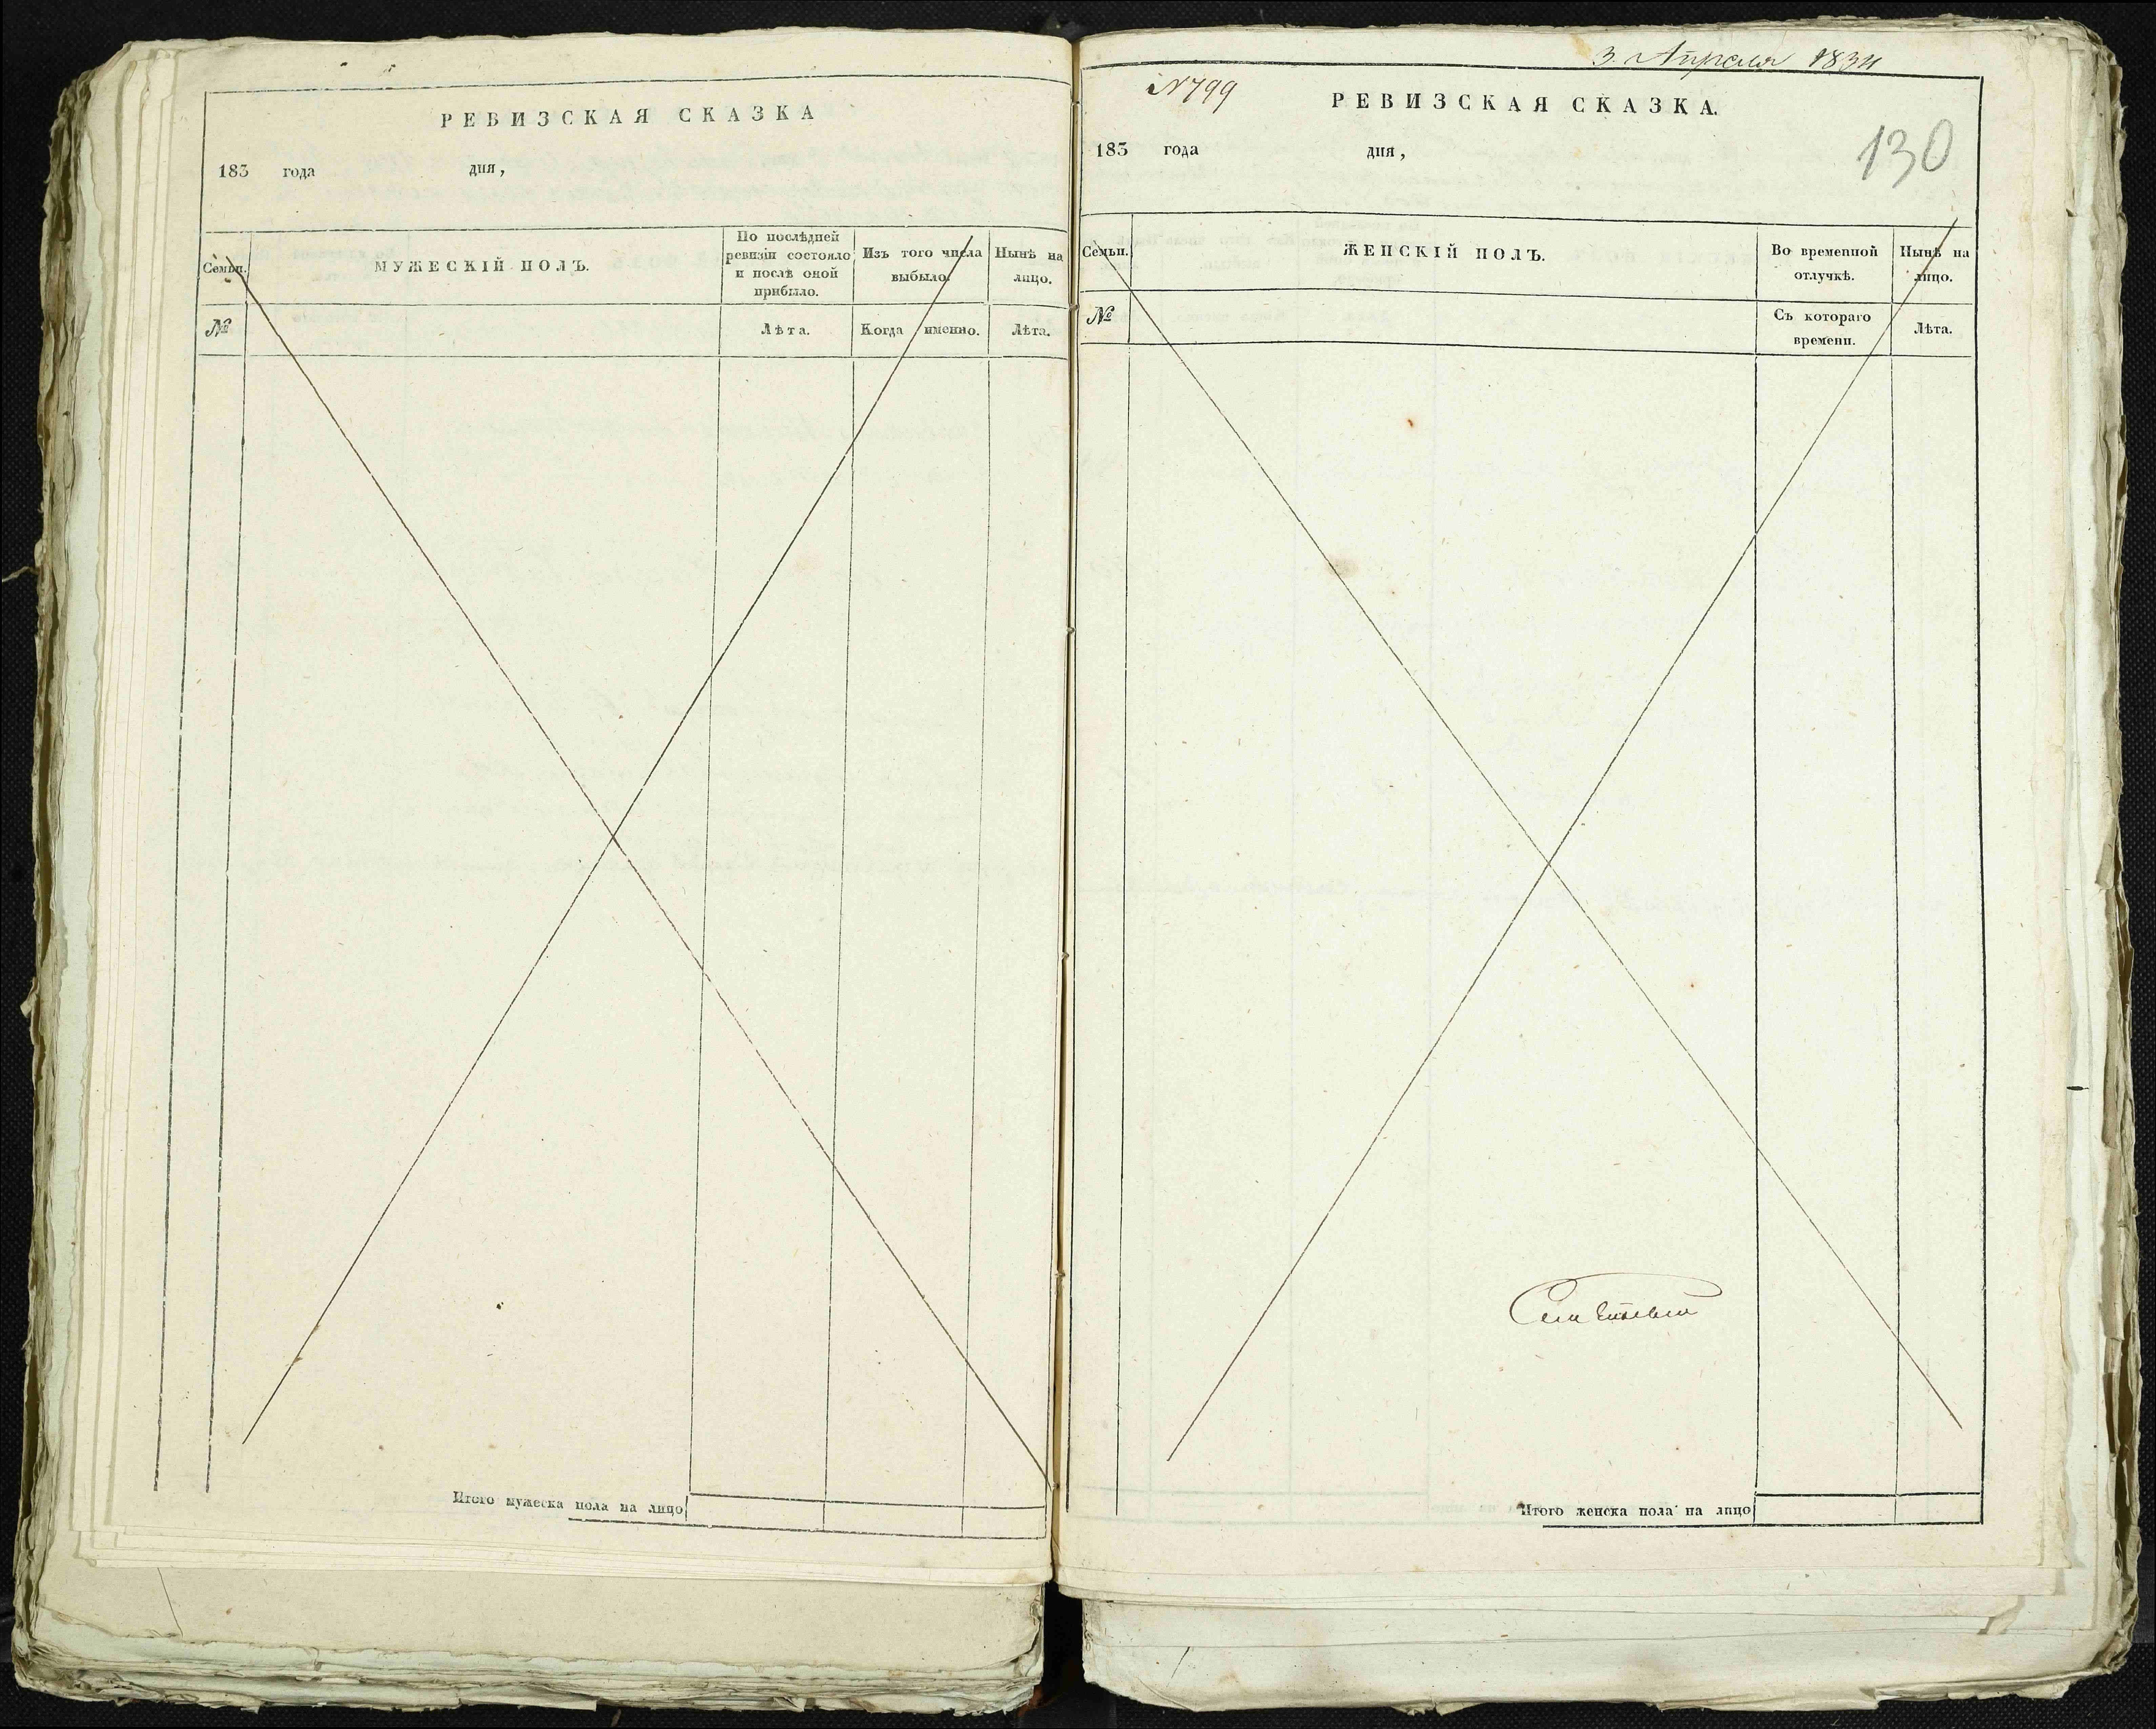 РЕВИЗСКАЯ СКАЗКА
183 года дня,
Семьи.
МУЖЕСКІЙ ПОЛЪ.
По послѣдней ревизіи состояло и послѣ оной прибыло.
Изъ того числа выбыло.
Нынѣ на лицо.
№
Лѣта.
Когда именно.
Лѣта.
Итого мужеска пола на лицо
3. Апреля 1834
№799
РЕВИЗСКАЯ СКАЗКА.
130
183 года дня,
Семьи.
ЖЕНСКІЙ ПОЛЪ.
Во временной отлучкѣ.
Нынѣ на лицо.
№
Съ котораго времени.
Лѣта.
Итого женска пола на лицо